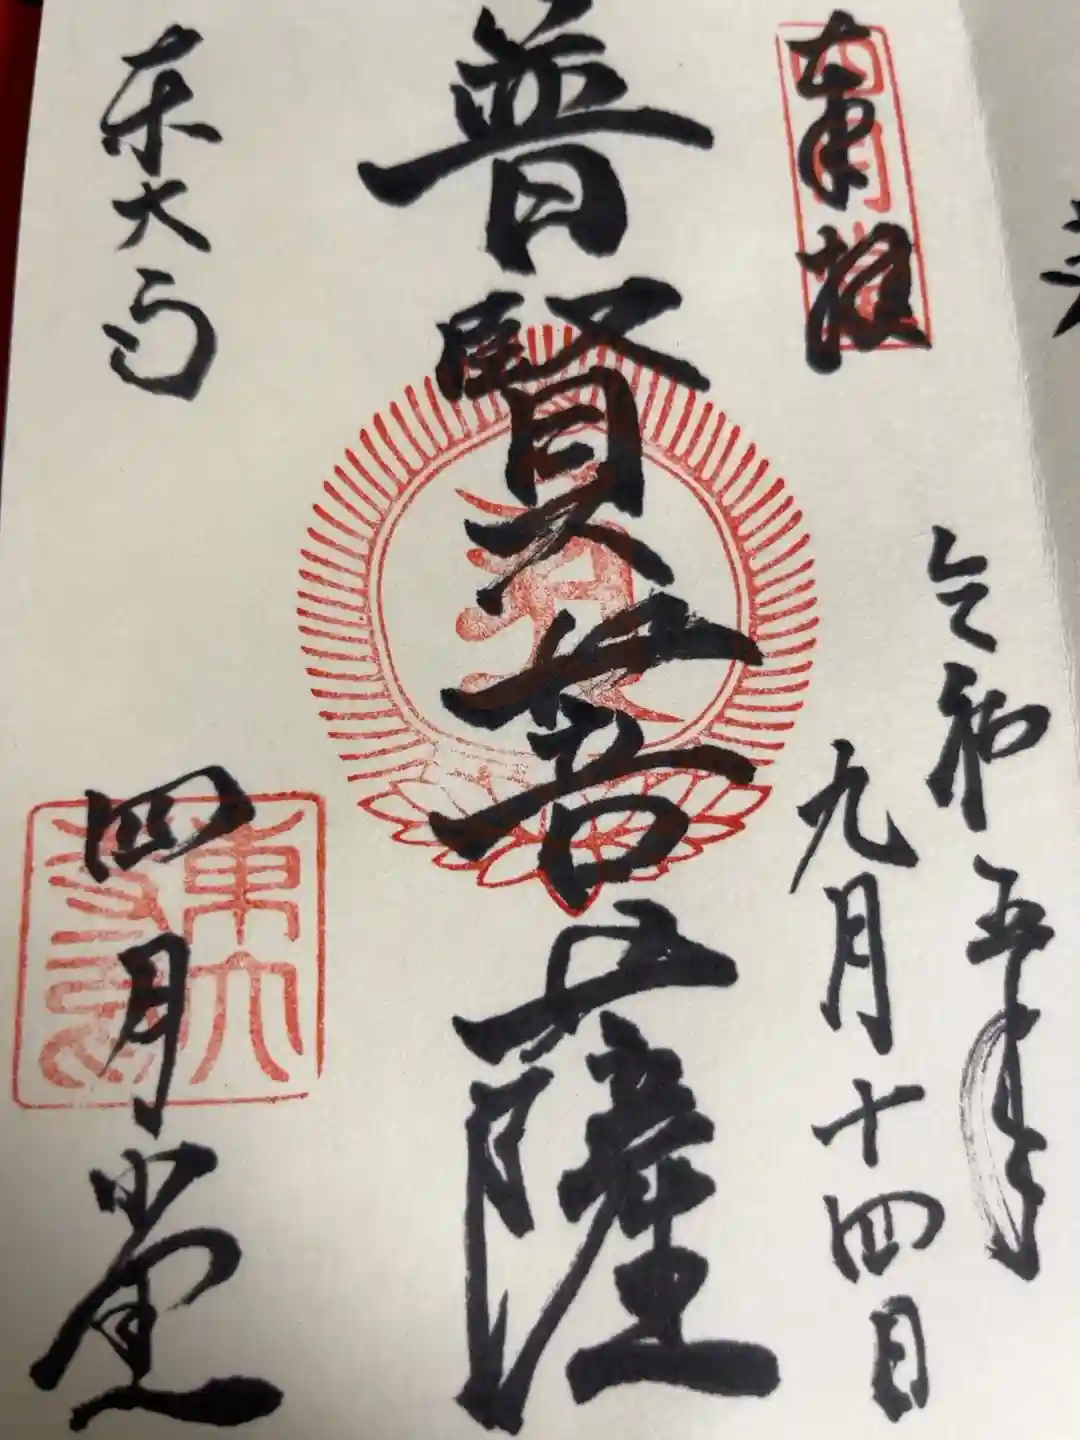 奉拝
四月堂
令和五年
九月十四日
普賢菩薩
東大寺
四月堂
東大寺